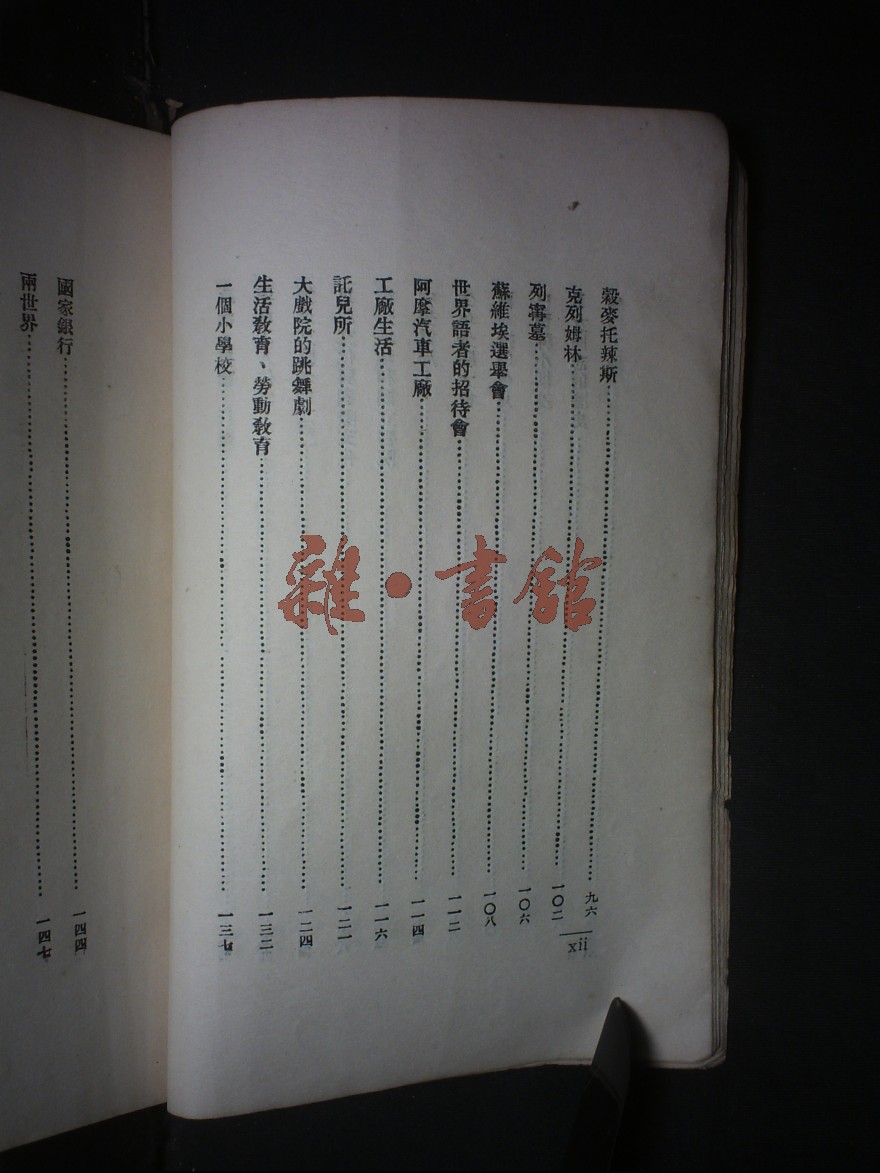 穀麥托辣斯……九六
克列姆林……一〇二
列寧墓……一〇六
蘇維埃選舉會……一〇八
世界語者的招待會……一一二
阿摩汽車工廠……一一四
工廠生活……一一六
託兒所……一二一
大戲院的跳舞劇……一二四
生活教育、勞動教育……一三二
一個小學校……一三七
xii
國家銀行……一四四
兩世界……一四七
雜·書館